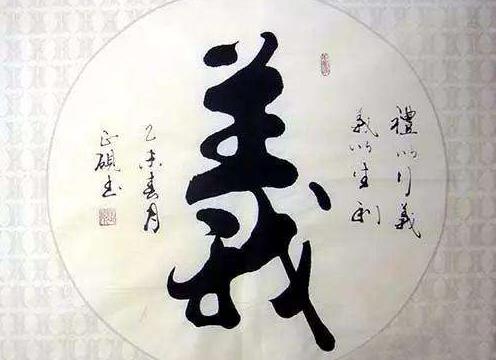 禮以行義
義以生利
義
乙未春月
正硯書